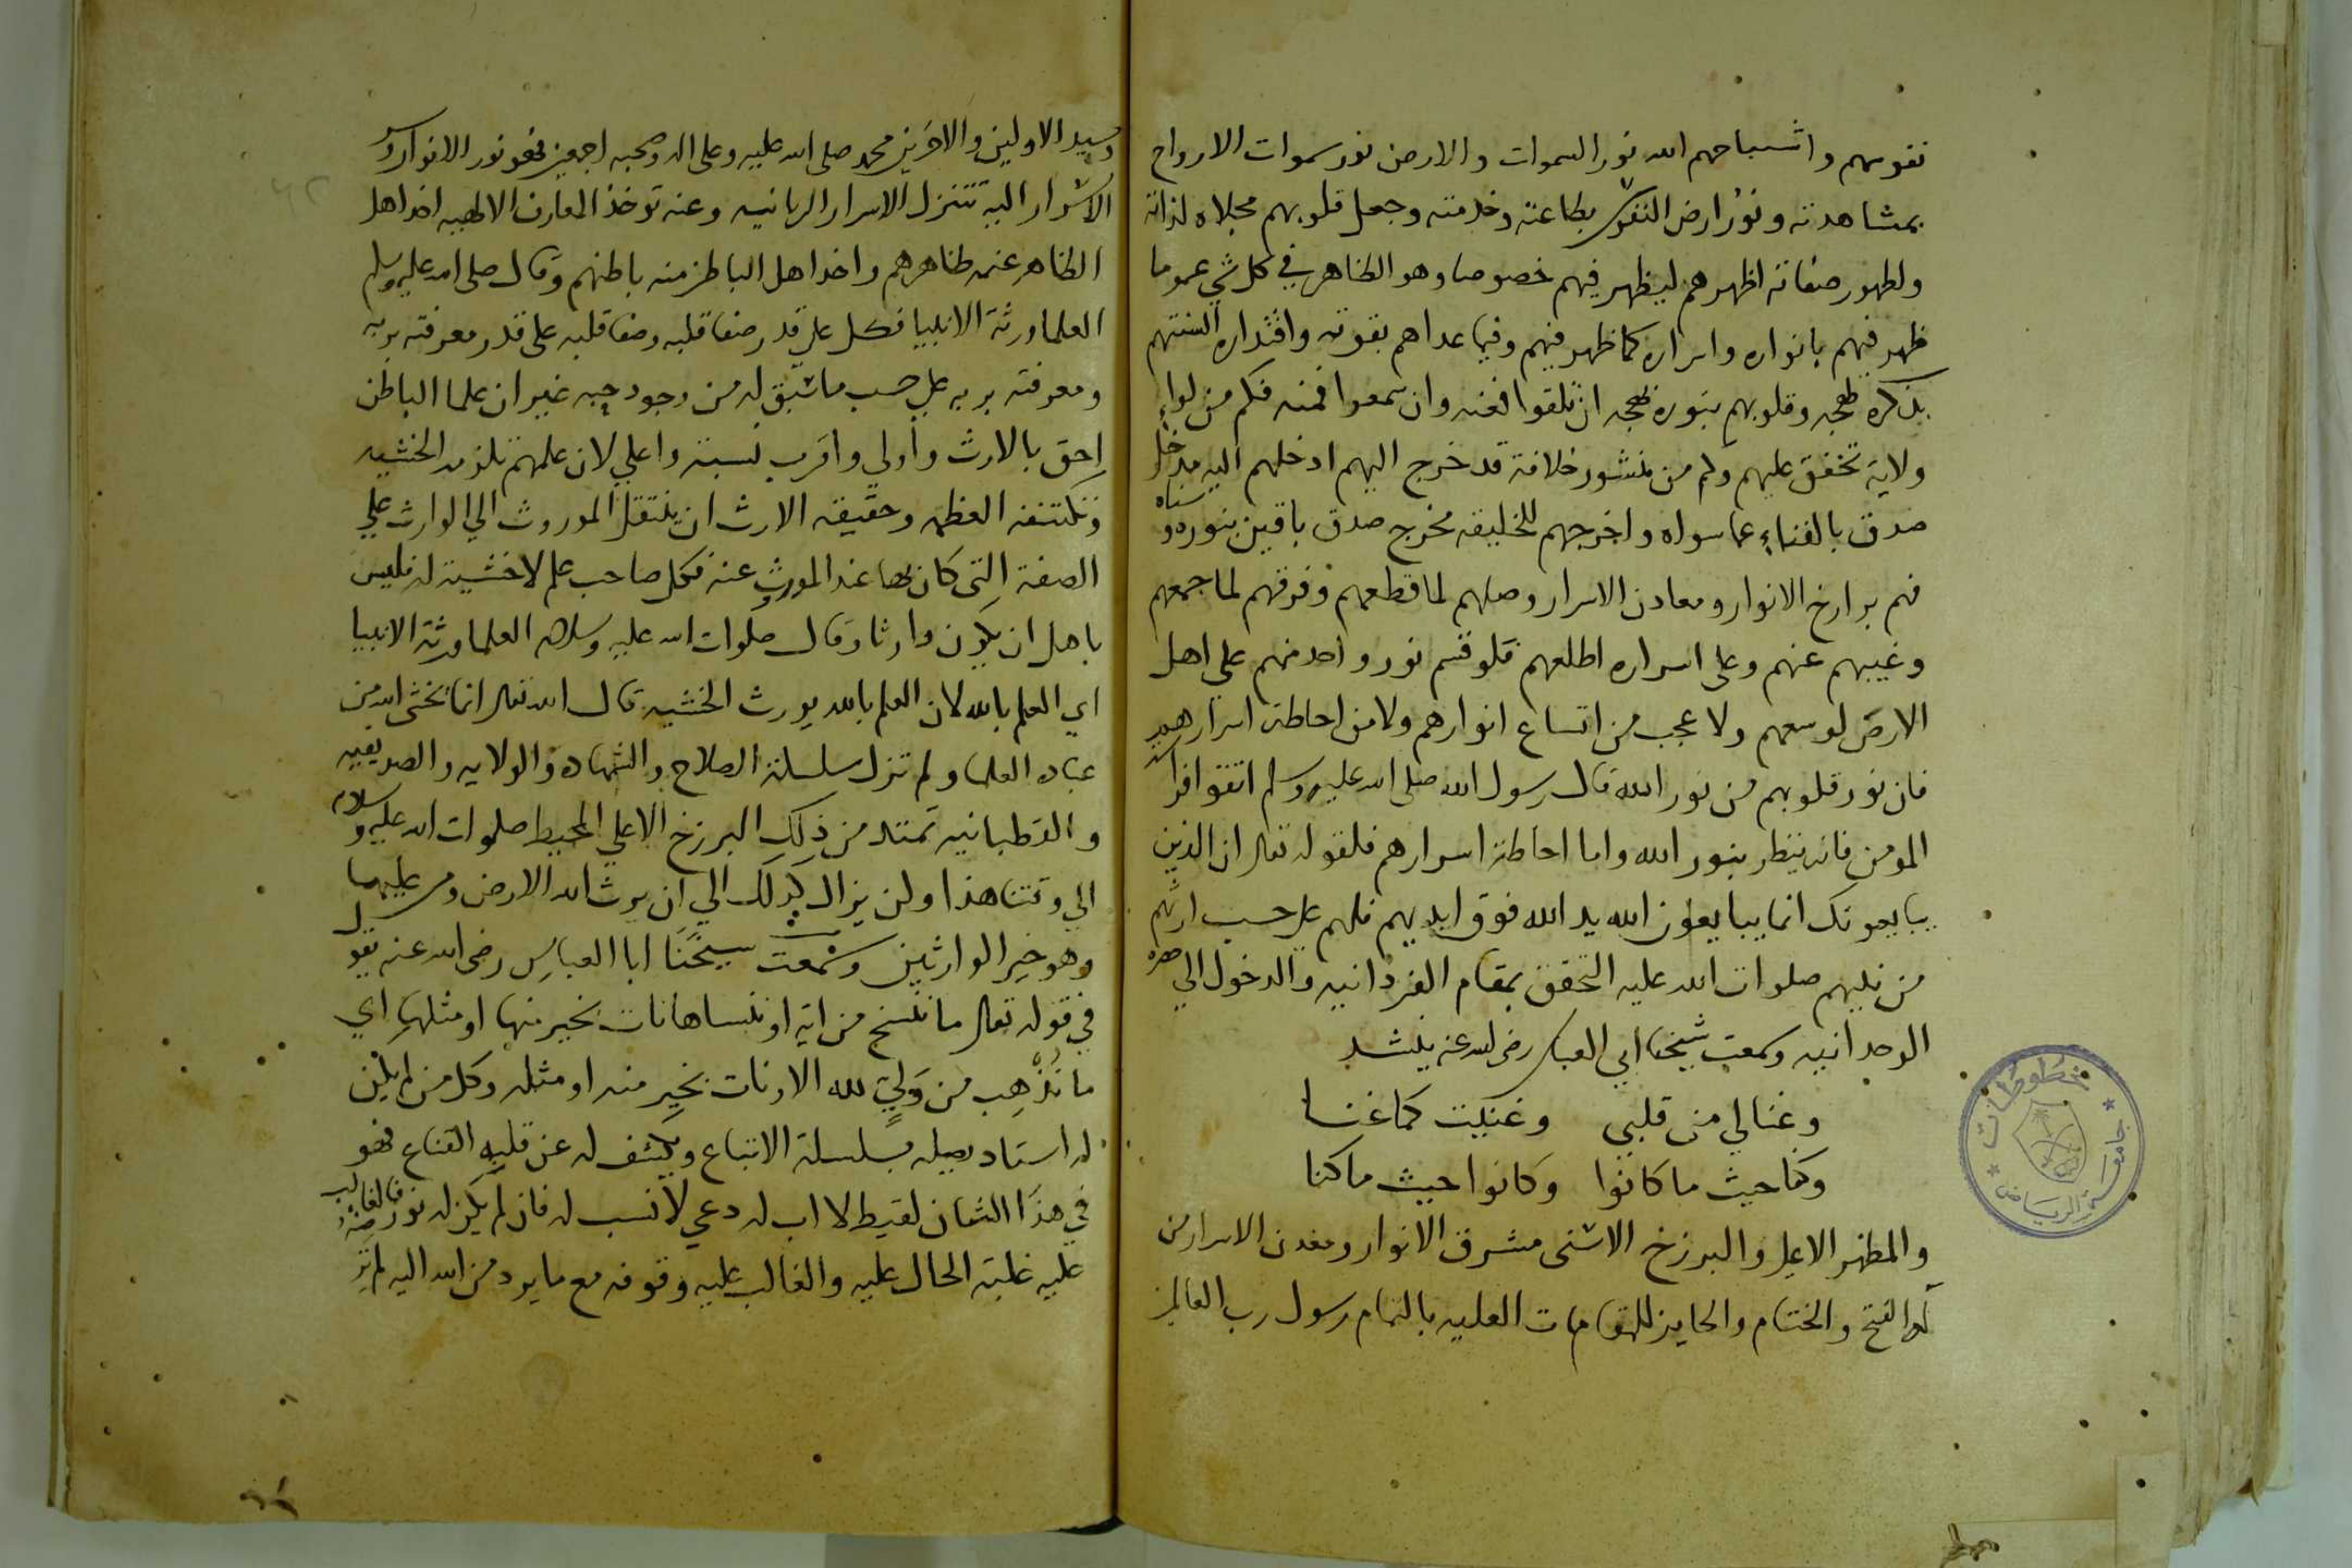 نفوسهم واشباحهم الله نور السموات والارض نور سموات الارواح
بمشاهدته ونور ارض النفوس بطاعته وخدمته وجعل قلوبهم مجلاه لذاته
ولظهور صفاته اظهرهم ليظهر فيهم خصوصا وهو الظاهر في كل شي عموما
ظهر فيهم بانواره واسراره كما ظهر فيهم وفيما عداهم بقوته واقتداره السنتهم
بذكره لهجه وقلوبهم بنوره بهجه ان نطقوا فعنه وان سمعوا فمنه فكم من لواء
ولاية تخفق عليهم وكم من منشور خلافة قد خرج اليهم ادخلهم اليه مدخل
صدق بالفناء عما سواه واخرجهم للخليقه مخرج صدق باقين بنوره وسناه
فهم برازخ الانوار ومعادن الاسرار وصلهم لما قطعهم وفرقهم لما جمعهم
وغيبهم عنهم وعلى اسراره اطلعهم فلو قسم نور واحد منهم على اهل
الارض لوسعهم ولا عجب من اتساع انوارهم ولا من احاطة اسرارهم
فان نور قلوبهم من نور الله قال رسول الله صلى الله عليه وسلم اتقوا فراسة
المومن فانه ينظر بنور الله واما احاطة اسرارهم فلقوله تعالى ان الذين
يبايعونك انما يبايعون الله يد الله فوق ايديهم فلهم على حسب ارثهم
من نبيهم صلوات الله عليه التحقق بمقام الفردانيه والدخول الى حضرة
الوحدانيه وسمعت شيخنا ابي العباس رضي الله عنه ينشد
وغنا لي من قلبي وغنيت كما غنا
وكنا حيث ما كانوا وكانوا حيث ما كنا
والمظهر الاعلى والبرزخ الاسنى مشرق الانوار ومعدن الاسرار من
له الفتح والختام والحايز للمقامات العليه بالتمام رسول رب العالمين
وسيد الاولين والاخرين محمد صلى الله عليه وعلى اله وصحبه اجمعين فهو نور الانوار وسر
الاسرار اليه تتنزل الاسرار الربانيه وعنه توخذ المعارف الالهيه اخذ اهل
الظاهر عنه ظاهرهم واخذ اهل الباطن منه باطنهم وقال صلى الله عليه وسلم
العلما ورثة الانبيا فكل على قدر صفا قلبه وصفا قلبه على قدر معرفته بربه
ومعرفته بربه على حسب ما سبق له من وجود حبه غير ان علما الباطن
احق بالارث واولي واقرب نسبة واعلي لان علمهم تلزمه الخشيه
وتكتنفه العظمه وحقيقه الارث ان ينتقل الموروث الي الوارث علي
الصفة التى كان بها عند الموروث عنه فكل صاحب علم لا خشية له فليس
باهل ان يكون وارثا وقال صلوات الله عليه وسلامه العلما ورثة الانبيا
اي العلم بالله لان العلم بالله يورث الخشيه قال الله تعالى انما يخشى الله من
عباده العلما ولم تزل سلسلة الصلاح والشهاده والولايه والصديقيه
والقطبانيه تمتد من ذلك البرزخ الاعلي المحيط صلوات الله عليه وسلامه
الي وقتنا هذا ولن يزال كذلك الي ان يرث الله الارض ومن عليها
وهو خير الوارثين وسمعت شيخنا ابا العباس رضي الله عنه يقول
في قوله تعالى ما ننسخ من اية او ننساها نات بخير منها او مثلها اي
ما نذهب من ولي لله الا ونات بخير منه او مثله وكل من لم يكن
له استاد يصله بسلسلة الاتباع ويكشف له عن قلبه القناع فهو
في هذا الشان لقيط لا اب له دعي لا نسب له فان لم يكن له نور فالغالب
عليه غلبة الحال عليه والغالب عليه وقوفه مع ما يرد من الله اليه لم
خطوطات
جامعة الرياض